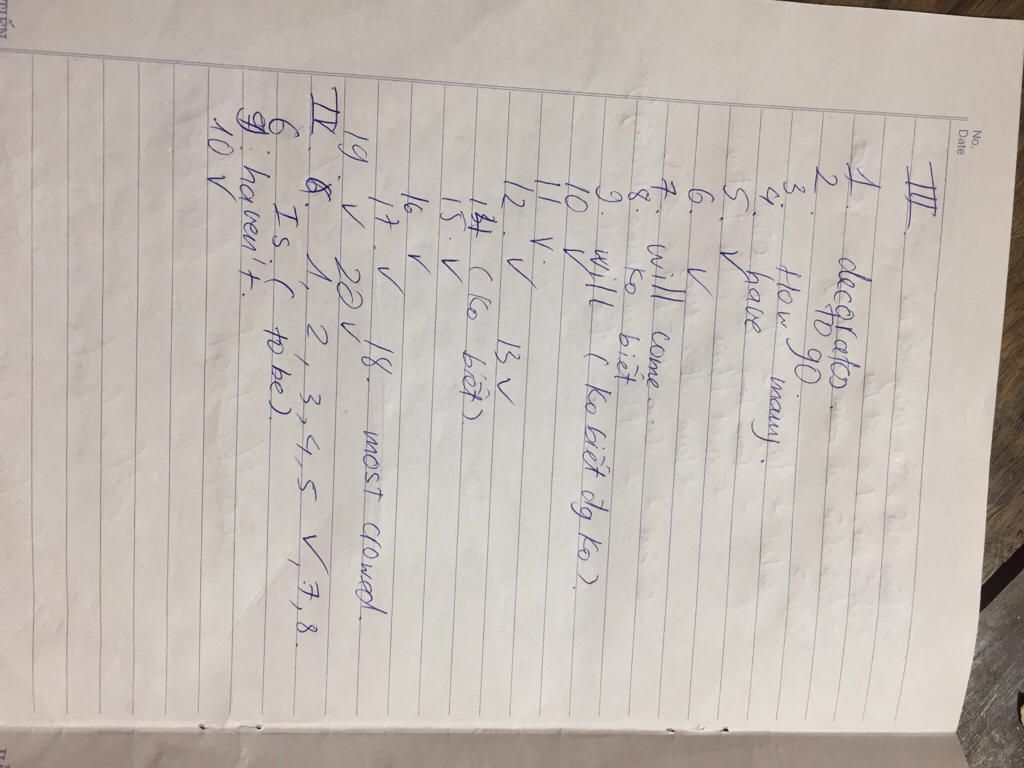 No.
Date
III.
1. decorates.
2. to go
3. How many.
4. have
5. V
6. V
7. will come.
8. ko biết
9. will ( ko biết đg ko).
10 V
11 V.
12. V 13 V
14 ( ko biết)
15. V
16 V
17. V 18. most crowed.
19 V 20 V
IV. 1, 2, 3, 4, 5 V, 7, 8.
6 Is ( to be).
9: haven't.
10 V